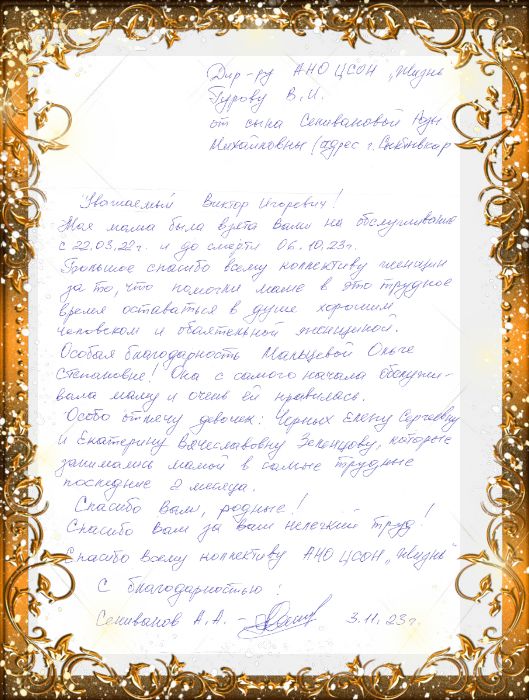 Дир-ру АНО ЦСОН „Жизнь
Гурову В.И.
от сына Селивановой Розы
Михайловны (адрес г. Сыктывкар
Уважаемый Виктор Игоревич!
Моя мама была взята Вами на обслуживание
с 22.03.22г. и до смерти 06.10.23г.
Большое спасибо всему коллективу женщин
за то, что помогли маме в это трудное
время оставаться в душе хорошим
человеком и обаятельной женщиной.
Особая благодарность Мальцевой Ольге
Степановне! Она с самого начала обслужи-
вала маму и очень ей нравилась.
Особо отмечу девочек: Черных Елену Сергеевну
и Екатерину Вячеславовну Зеленцову, которые
занимались мамой в самые трудные
последние 2 месяца.
Спасибо Вам, родные!
Спасибо Вам за ваш нелегкий труд!
Спасибо всему коллективу АНО ЦСОН „Жизнь"
С благодарностью:
Селиванов А.А. 3.11.23г.